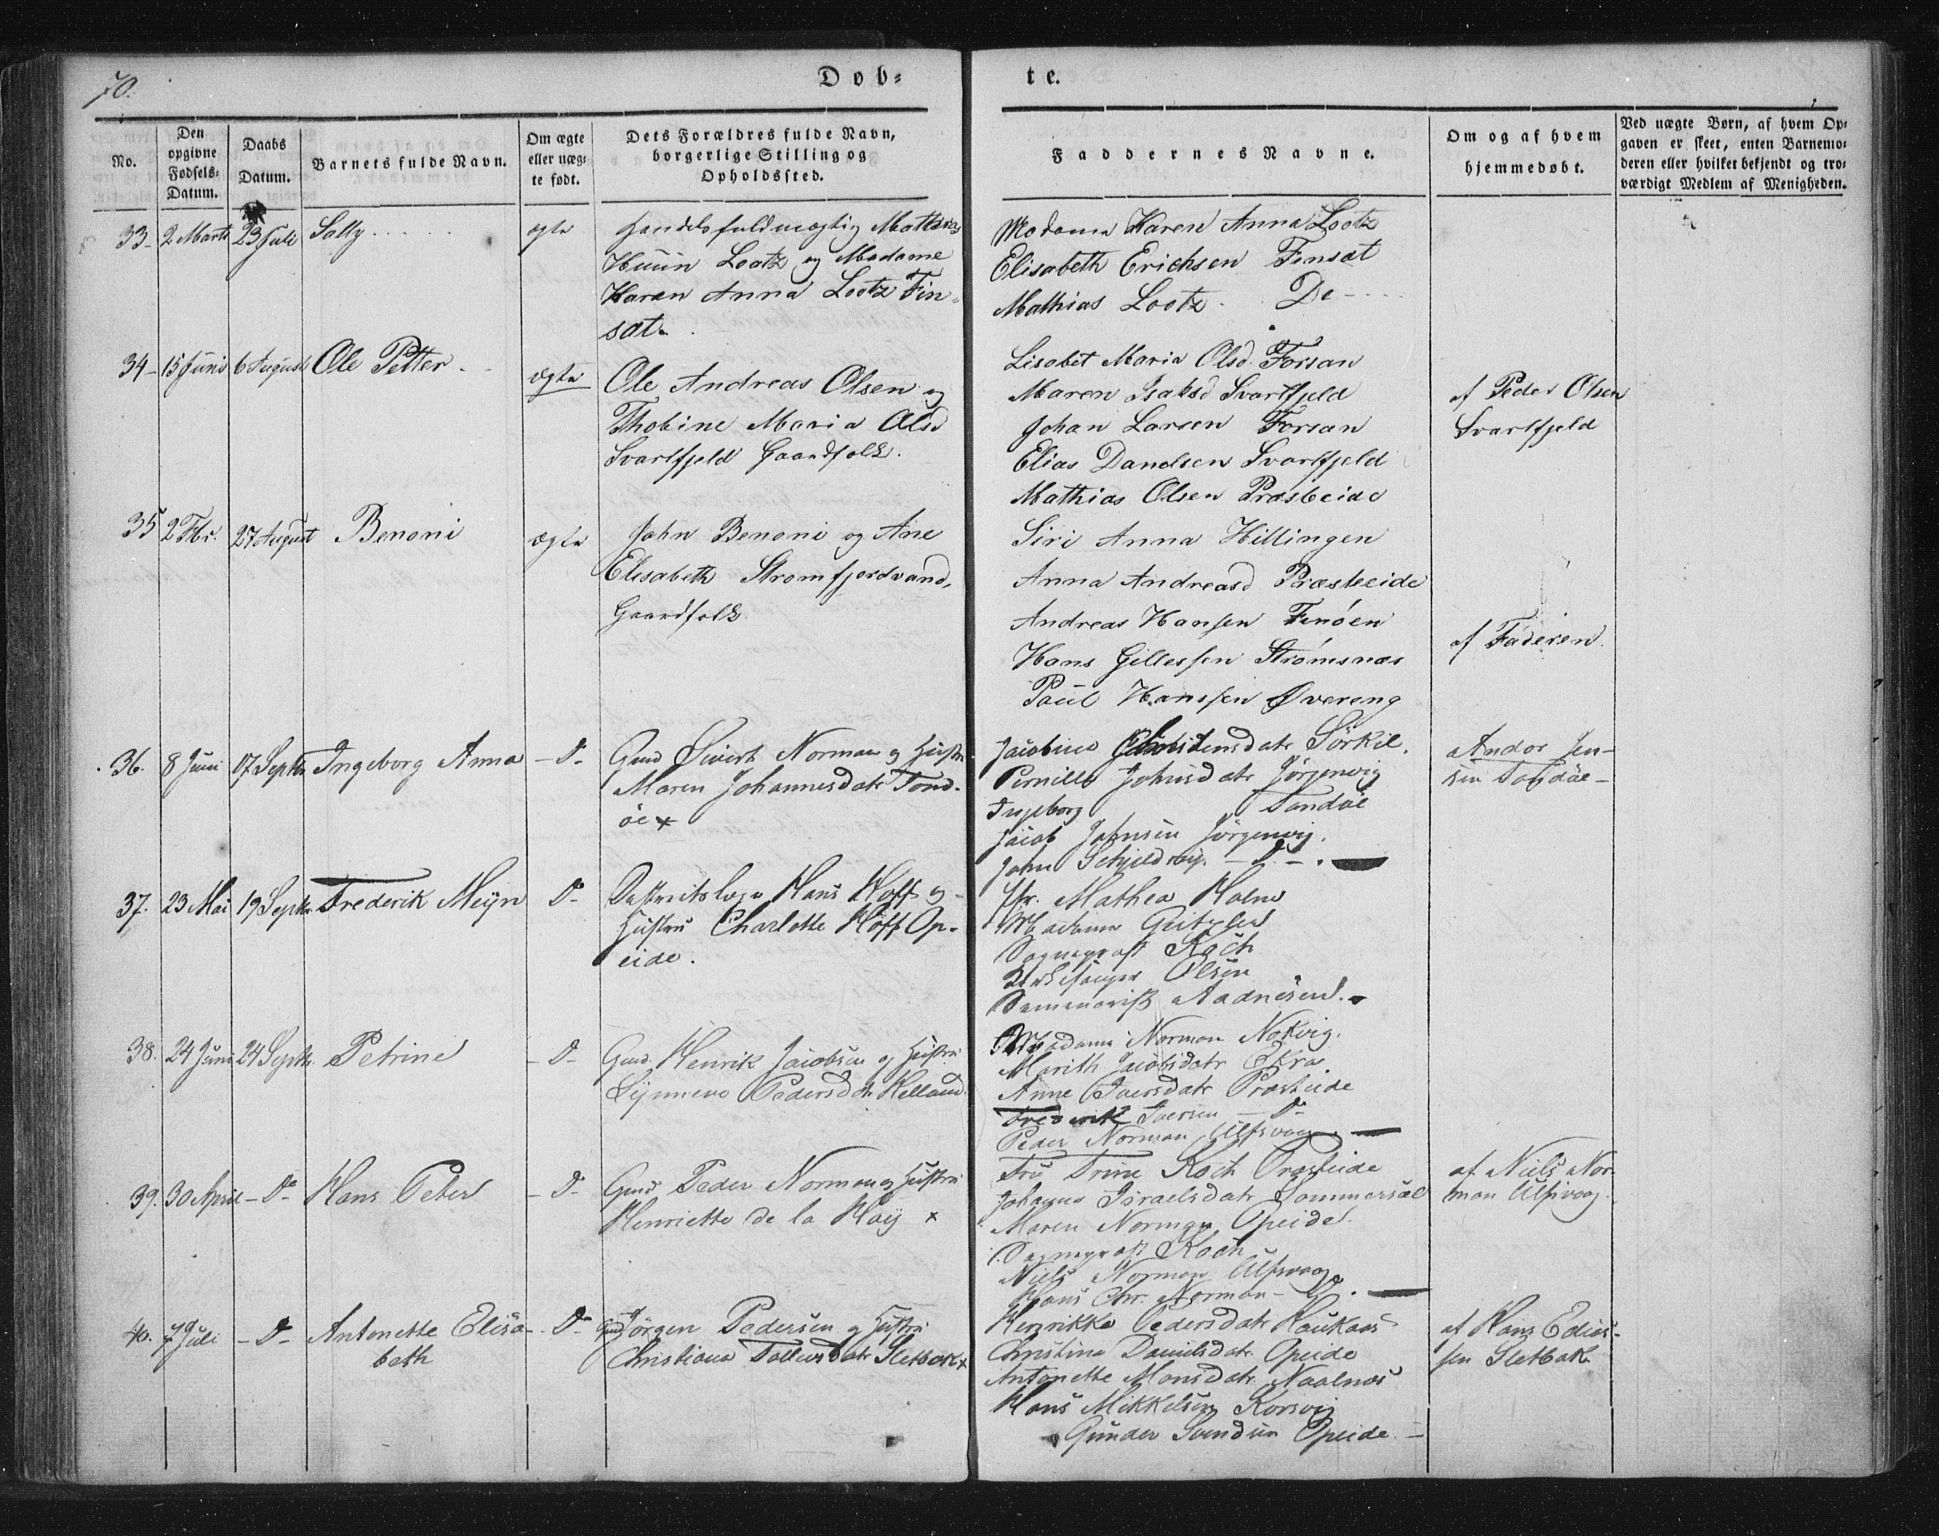 70.
Dob=
te.
No.
Den opgivne Fødsels-Datum.
Daabs Datum.
Barnets fulde Navn.
Om ægte eller uæg=te født.
Dets Forældres fulde Navn, borgerlige Stilling og Opholdssted.
Faddernes Navne.
Om og af hvem hjemmedøbt.
Ved uægte Børn, af hvem Op=gaven er skeet, enten Barnemo=deren eller hvilket bekjendt og tro=værdigt Medlem af Menigheden.
33 2 Marts 23 Juli Sally ægte
Handelsfuldmægtig Mathias
Huun Lootz og Madame
Karen Anna Lootz Fin=
sæt
Madame Karen Anna Lootz
Elisabeth Erichsen Finsæt
Mathias Lootz. Do
34 15 Juni 6 August Ole Petter ægte
Ole Andreas Olsen og
Thobine Maria Olsd
Svartfjeld Gaardfolk.
Lisabet Maria Olsd. Forsan
Maren Isaksd Svartfjeld
Johan Larsen Forsan
Elias Danelsen Svartfjeld
Mathias Olsen Præsteide
af Peder Olsen
Svartfjeld
35 2 Fbr. 27 August Benoni ægte
John Benoni og Ane
Elisabeth Strømfjordvand,
Gaardfolk
Siri Anna Hillingen
Anna Andreasd Præsteide
Andreas Hansen Finøen
Hans Gillessen Strømsnæs
Paul Hanssen Øvereng
af Faderen.
36. 8 Juni 17 Septbr Ingeborg Anna - D-
Gmd Sivert Norman og Hustru
Maren Johannesdatr Tond-
öe x
Jacobine Sörkil.
Pernille Johnsdatr Jörgenvig
Ingeborg Tandöe
Jacob Johnsen Jörgenvig.
John Schjeldrup - D -.
Andor Jen-
sen Tandöe -
37. 23 Mai 19 Septbr Frederik Meÿn D-
Districtslæge Hans Hoff og
Hustru Charlotte Hoff Op-
eide.
Fr. Mathea Holm
Madame
Sognepræst Koch
Kirkesanger Olsen
Seminarist Aadnesen.
38. 24 Juni 24 Septbr. Petrine - D-
Gmd. Henrik Jacobsen og Hustru
Synneve Pedersdatr Helland
Madame Norman Nokvig.
Marith Jacobsdatr Kraa
Anne Iversdatr Præsteide
Frederik Iversen - D-
Peder Norman Ulfsvaag.
39. 30 April - D- Hans Peter - D-
Gmd Peder Norman og Hustru
Henriette de la Haÿ x
Fru Trine Koch Præsteide
Johanna Israelsdatr Sommersæl
Maren Norman Opeide.
Sognepræst Koch
Niels Norman Ulfsvaag
Hans Chr. Norman - D.
af Niels Nor-
man Ulfsvaag.
40. 7 Juli - D- Antonette Elisa- - D-
beth
Gmd Jörgen Pedersen og Hustru
Christiana Tollevsdatr Sletbak x
Henrikke Pedersdatr Haukaas
Christina Danielsdatr Opeide
Antonette Monsdatr Naalnæs
Hans Mikkelsen Korsvig
Gunder Opeide -
af Hans Edias-
sen Sletbak